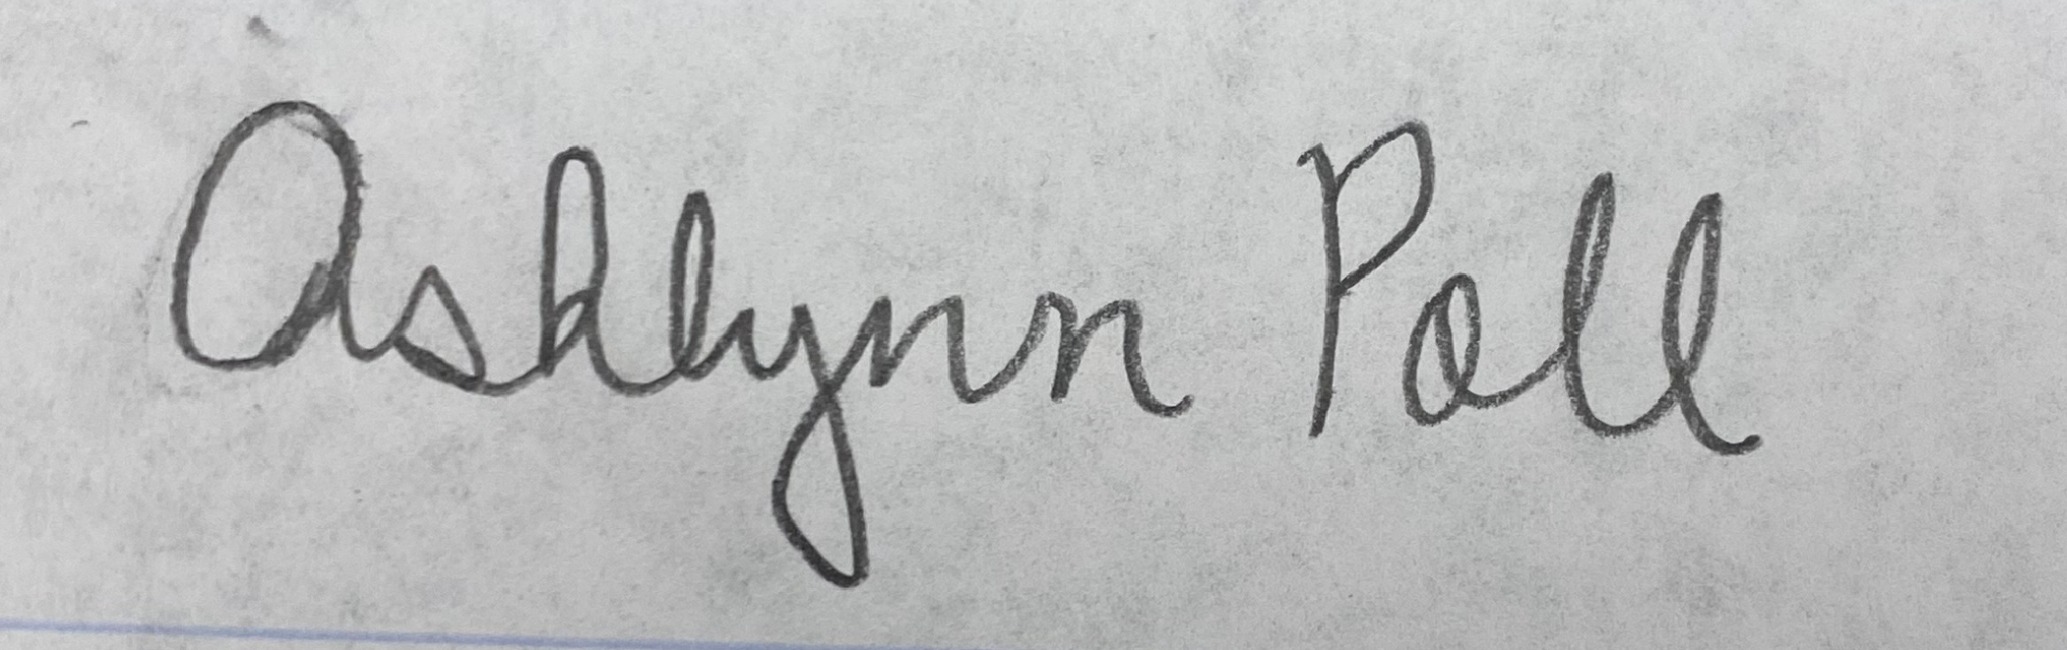 Ashlynn Poll